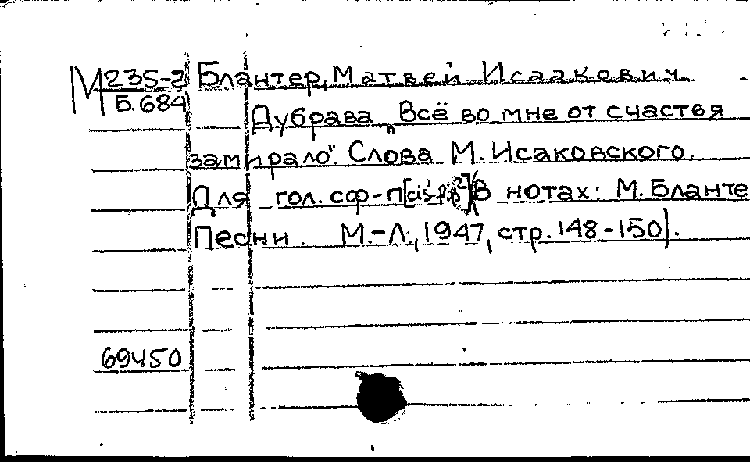 М 235-2 Блантер, Матвей Исаакович.
Б.684
Дубрава „Всё во мне от счастья
замирало". Слова М. Исаковского.
Для гол. с ф-п (В нотах: М. Бланте
Песни. М.-Л., 1947, стр. 148-150).
69450